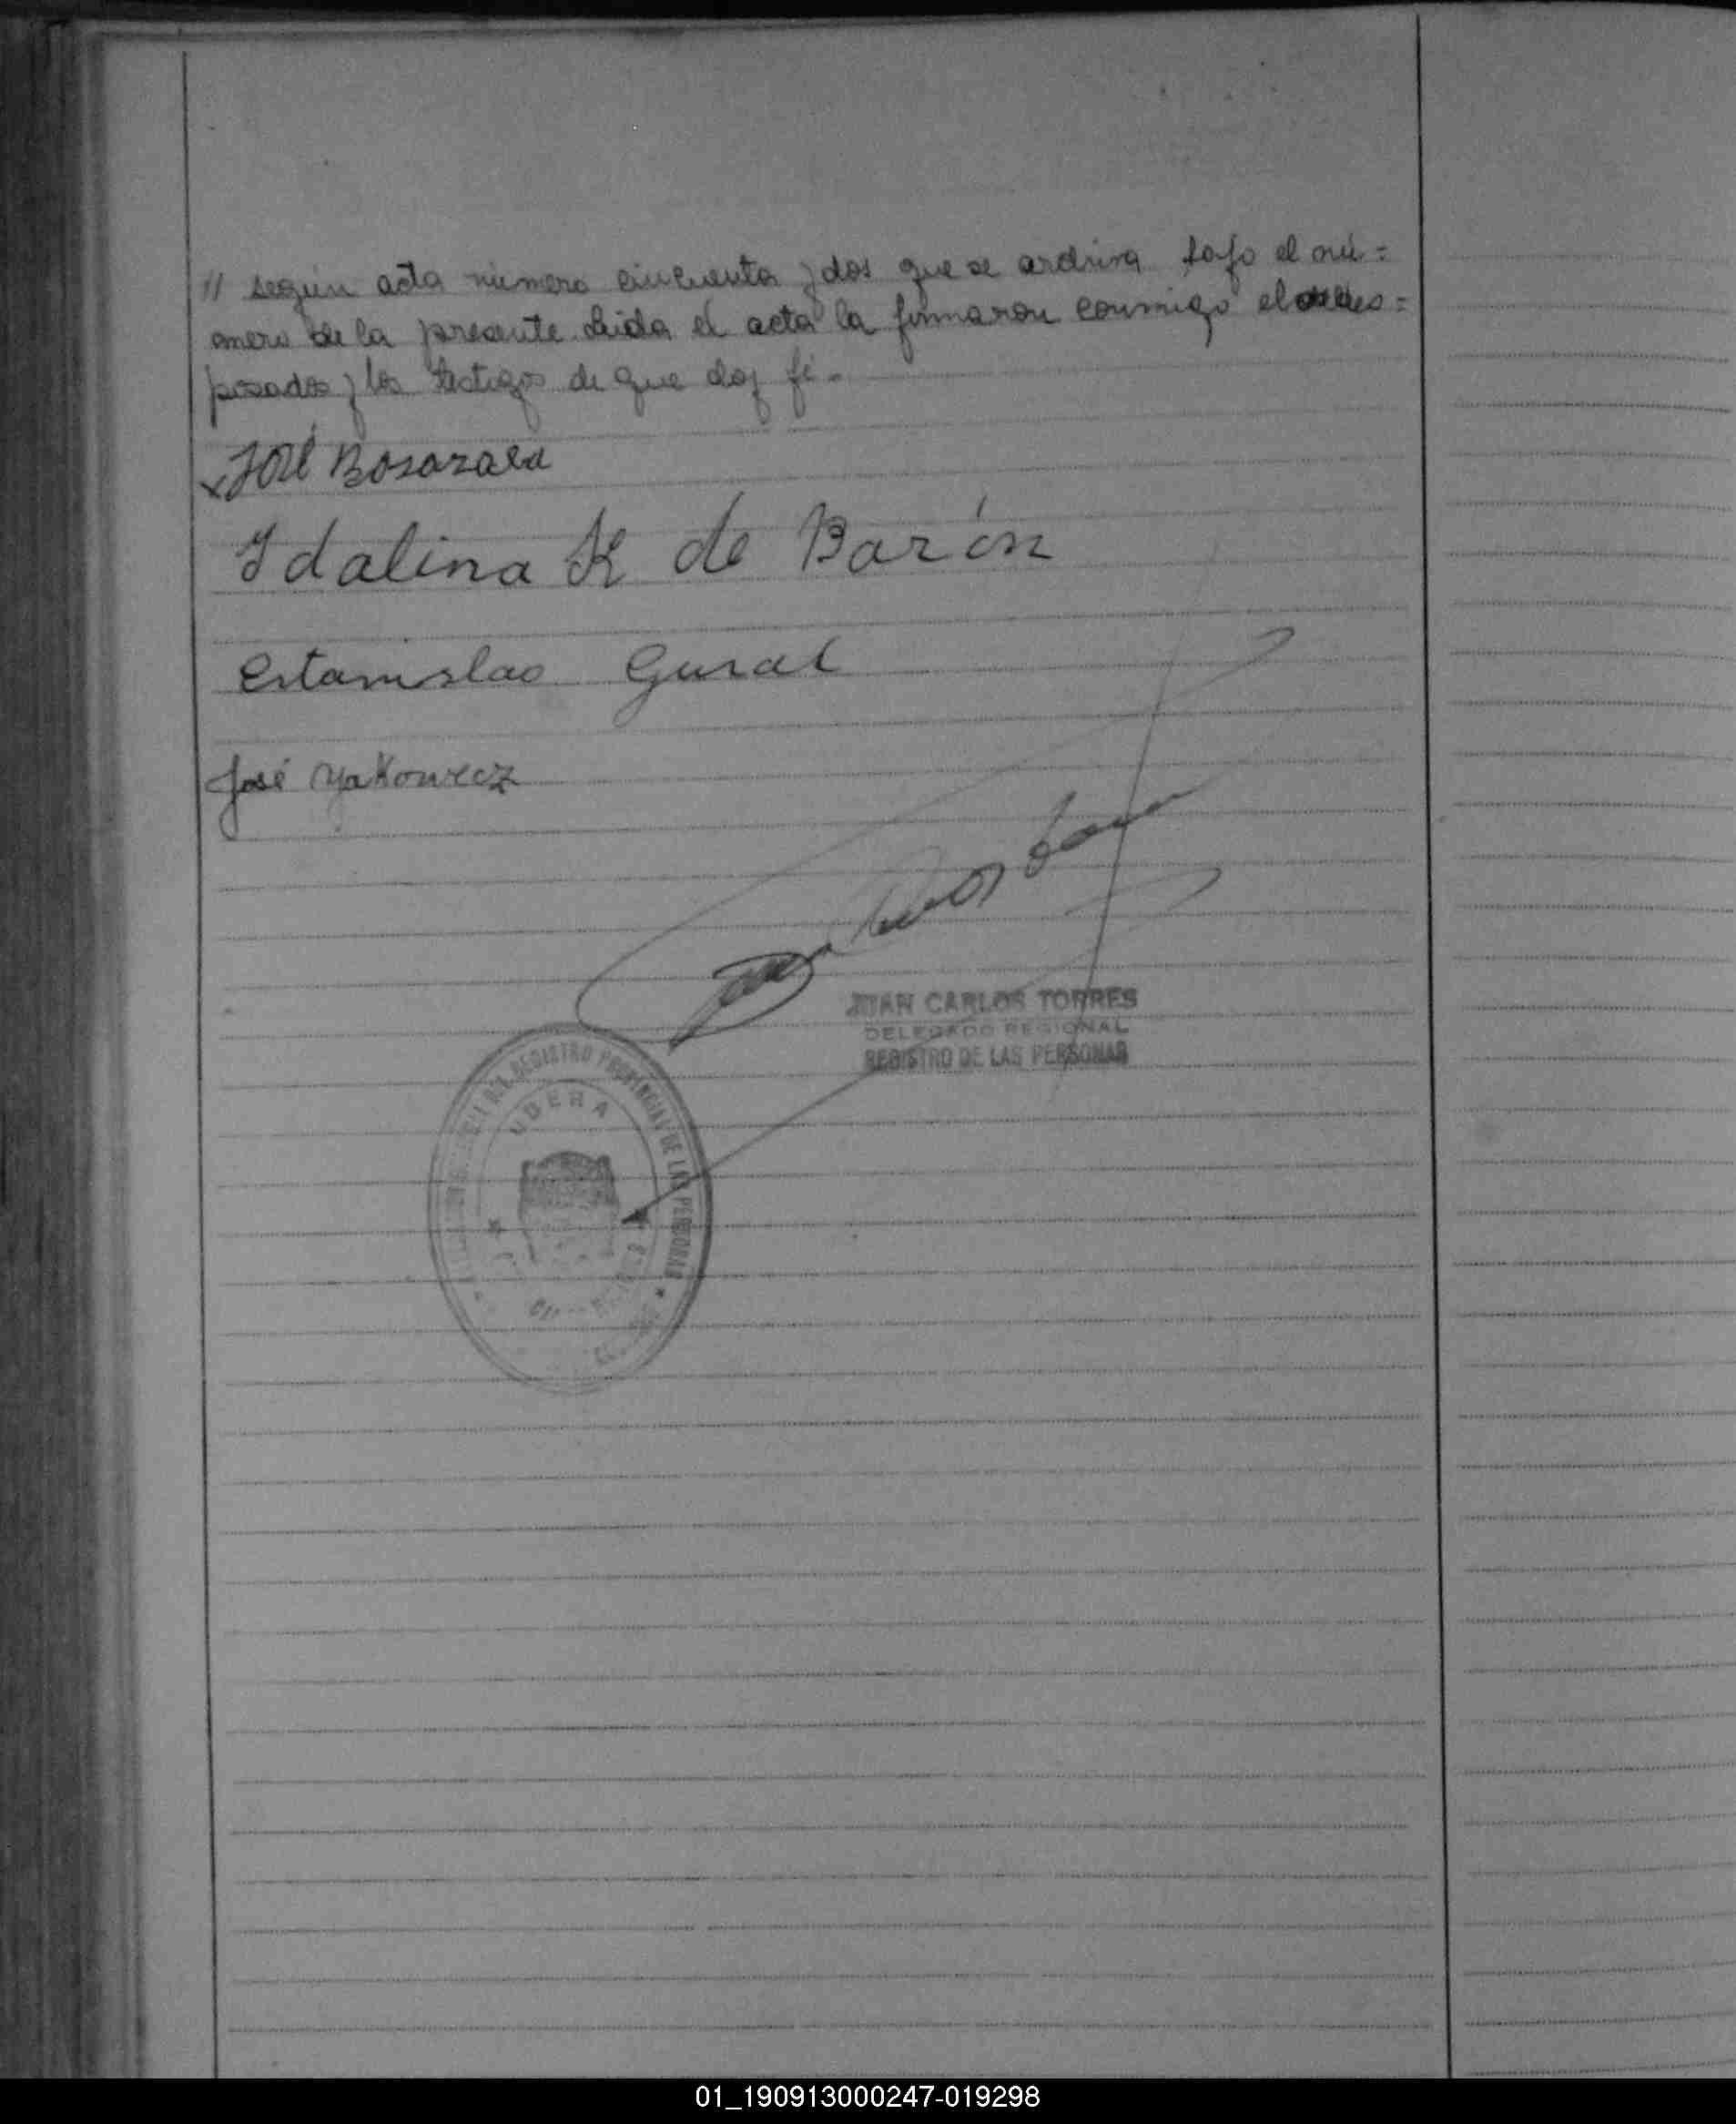 // según acta número cincuenta y dos que se archiva bajo el nú=
mero de la presente. Leida el acta la firmaron conmigo
posados y los testigos de que doy fé.-
José
Idalina K de Barón
Estanislao Gural
José Yakowicz
JUAN CARLOS TORRES
DELEGADO REGIONAL
REGISTRO DE LAS PERSONAS
REGISTRO PROVINCIAL DE LAS PERSONAS
UBERA